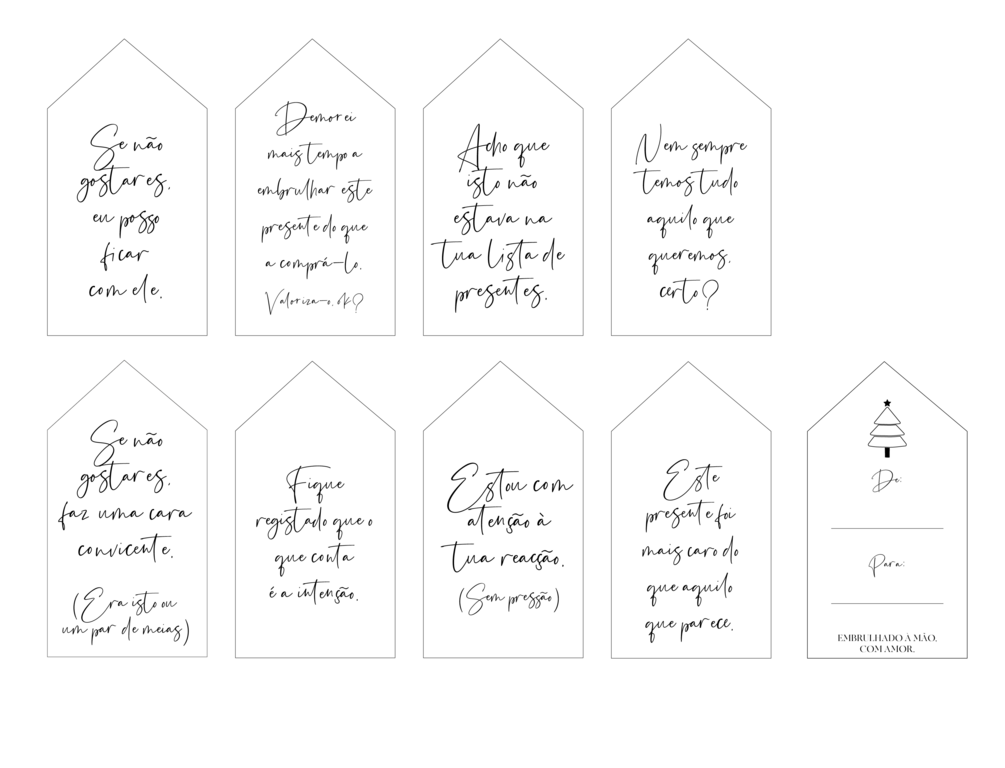 Se não
gostares,
eu posso
ficar
com ele.
Demorei
mais tempo a
embrulhar este
presente do que
a comprá-lo.
Valoriza-o, ok?
Acho que
isto não
estava na
tua lista de
presentes.
Nem sempre
temos tudo
aquilo que
queremos,
certo?
Se não
gostares,
faz uma cara
convicente.
(Era isto ou
um par de meias)
Fique
registado que o
que conta
é a intenção.
Estou com
atenção à
tua reacção.
(Sem pressão)
Este
presente foi
mais caro do
que aquilo
que parece.
De:
Para:
EMBRULHADO À MÃO,
COM AMOR.